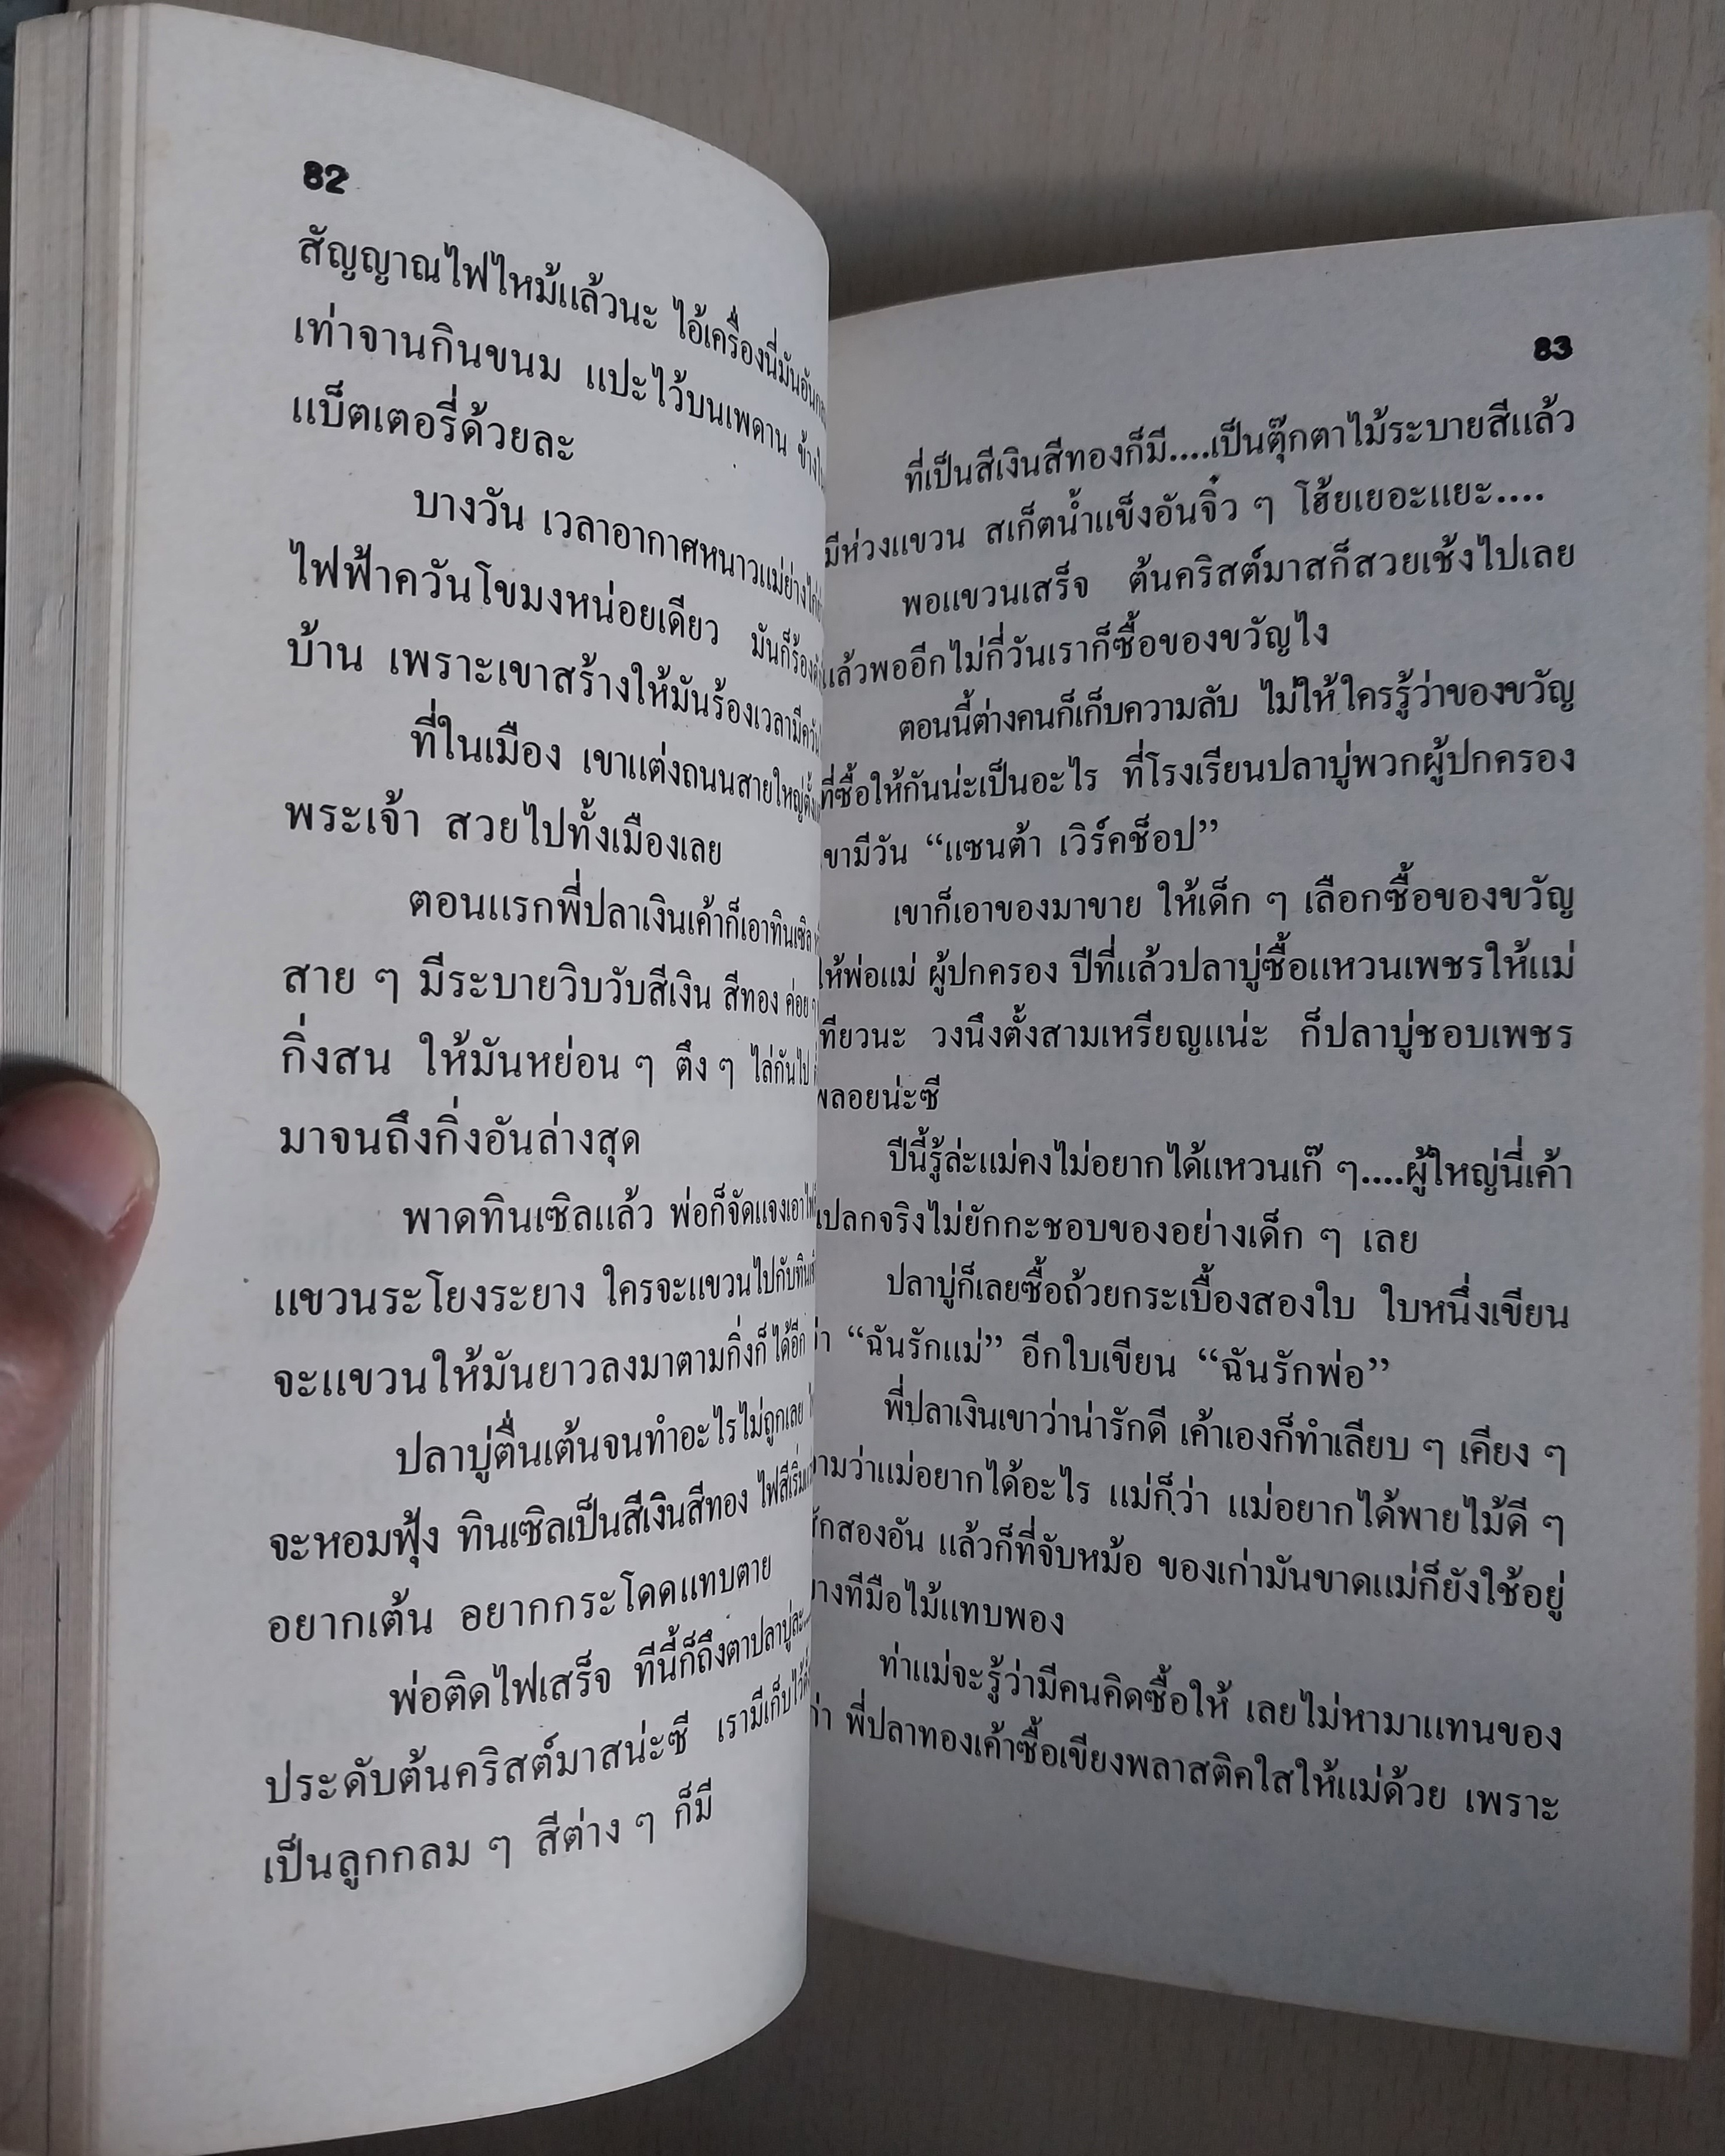 82
สัญญาณไฟไหม้แล้วนะ ไอ้เครื่องนี่มันอัน
เท่าจานกินขนม แปะไว้บนเพดาน
แบ็ตเตอรี่ด้วยละ
บางวัน เวลาอากาศหนาวแม่ย่าง
ไฟฟ้าควันโขมงหน่อยเดียว มันก็ร้อง
บ้าน เพราะเขาสร้างให้มันร้องเวลามีควัน
ที่ในเมือง เขาแต่งถนนสายใหญ่
พระเจ้า สวยไปทั้งเมืองเลย
ตอนแรกพี่ปลาเงินเค้าก็เอาทินเซิล
สาย ๆ มีระบายวิบวับสีเงิน สีทอง ค่อย ๆ
กิ่งสน ให้มันหย่อน ๆ ตึง ๆ ไล่กันไป
มาจนถึงกิ่งอันล่างสุด
พาดทินเซิลแล้ว พ่อก็จัดแจงเอา
แขวนระโยงระยาง ใครจะแขวนไปกับ
จะแขวนให้มันยาวลงมาตามกิ่งก็ได้อีก
ปลาบู่ตื่นเต้นจนทำอะไรไม่ถูกเลย
จะหอมฟุ้ง ทินเซิลเป็นสีเงินสีทอง ไฟสีเริ่ม
อยากเต้น อยากกระโดดแทบตาย
พ่อติดไฟเสร็จ ทีนี้ก็ถึงตาปลาบู่ละ
ประดับต้นคริสต์มาสน่ะซี เรามีเก็บไว้
เป็นลูกกลม ๆ สีต่าง ๆ ก็มี
83
ที่เป็นสีเงินสีทองก็มี....เป็นตุ๊กตาไม้ระบายสีแล้ว
มีห่วงแขวน สเก็ตน้ำแข็งอันจิ๋ว ๆ โฮ้ยเยอะแยะ....
พอแขวนเสร็จ ต้นคริสต์มาสก็สวยเช้งไปเลย
แล้วพออีกไม่กี่วันเราก็ซื้อของขวัญไง
ตอนนี้ต่างคนก็เก็บความลับ ไม่ให้ใครรู้ว่าของขวัญ
ที่ซื้อให้กันน่ะเป็นอะไร ที่โรงเรียนปลาบู่พวกผู้ปกครอง
เขามีวัน “แซนต้า เวิร์คช็อป”
เขาก็เอาของมาขาย ให้เด็ก ๆ เลือกซื้อของขวัญ
ให้พ่อแม่ ผู้ปกครอง ปีที่แล้วปลาบู่ซื้อแหวนเพชรให้แม่
เทียวนะ วงนึงตั้งสามเหรียญแน่ะ ก็ปลาบู่ชอบเพชร
พลอยน่ะซี
ปีนี้รู้ล่ะแม่คงไม่อยากได้แหวนเก๊ ๆ....ผู้ใหญ่นี่เค้า
แปลกจริงไม่ยักกะชอบของอย่างเด็ก ๆ เลย
ปลาบู่ก็เลยซื้อถ้วยกระเบื้องสองใบ ใบหนึ่งเขียน
ว่า “ฉันรักแม่” อีกใบเขียน “ฉันรักพ่อ”
พี่ปลาเงินเขาว่าน่ารักดี เค้าเองก็ทำเลียบ ๆ เคียง ๆ
ถามว่าแม่อยากได้อะไร แม่ก็ว่า แม่อยากได้พายไม้ดี ๆ
สักสองอัน แล้วก็ที่จับหม้อ ของเก่ามันขาดแม่ก็ยังใช้อยู่
บางทีมือไม้แทบพอง
ท่าแม่จะรู้ว่ามีคนคิดซื้อให้ เลยไม่หามาแทนของ
เก่า พี่ปลาทองเค้าซื้อเขียงพลาสติคใสให้แม่ด้วย เพราะ